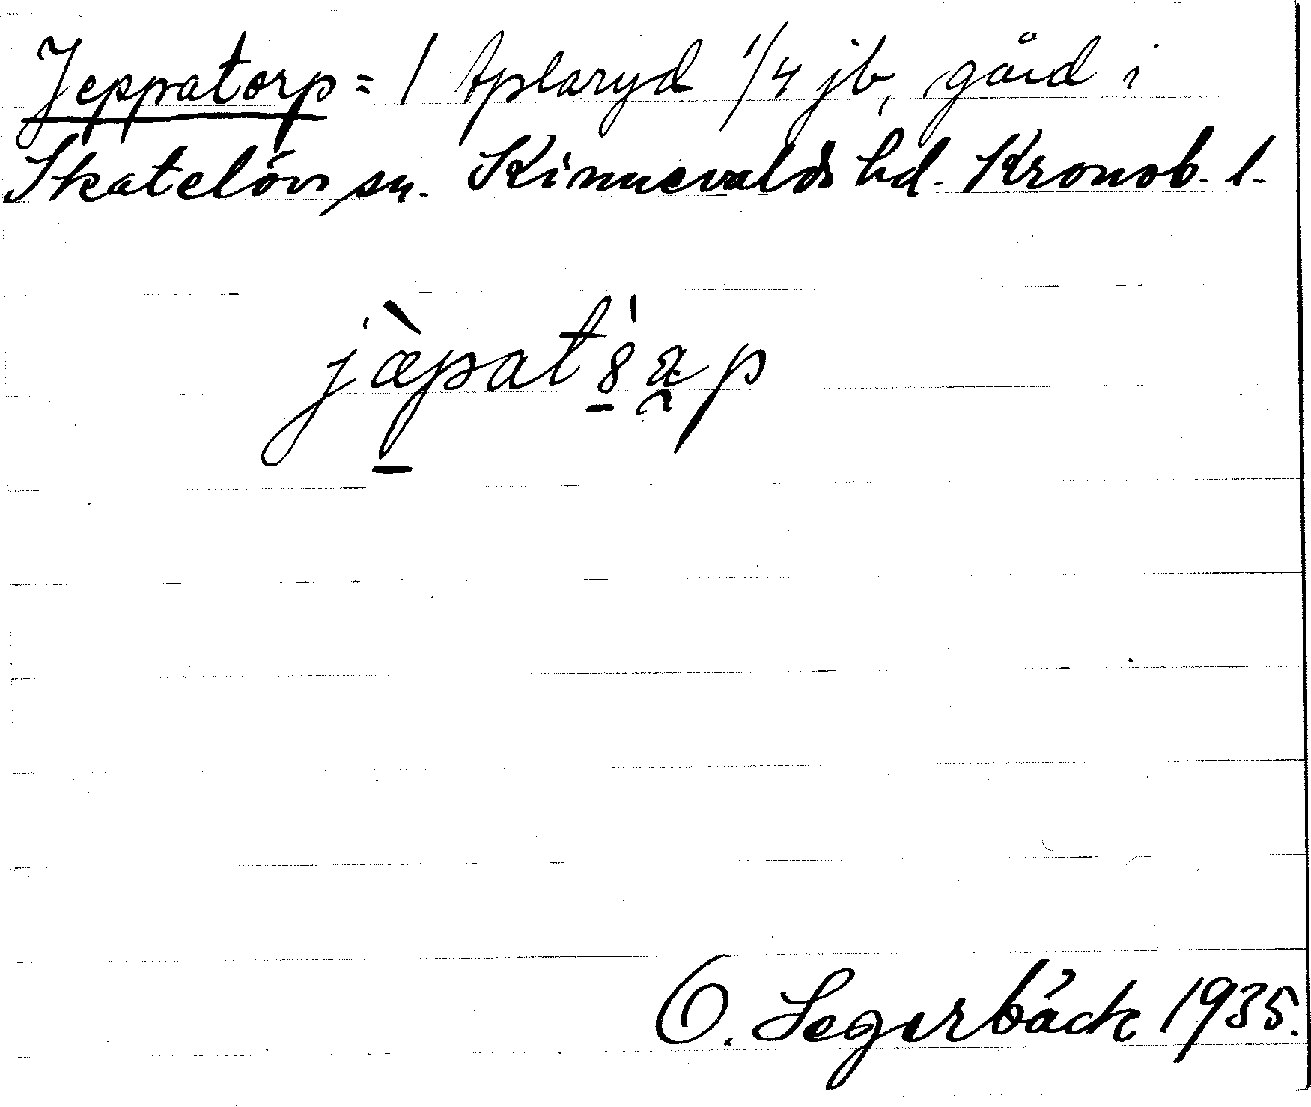 Jeppatorp = / Aplaryd 1/4 jb, gård i
Skatelövs sn. Kinnevalds hd. Kronob. l.
jæ̀pat
O. Segerbäck 1935.